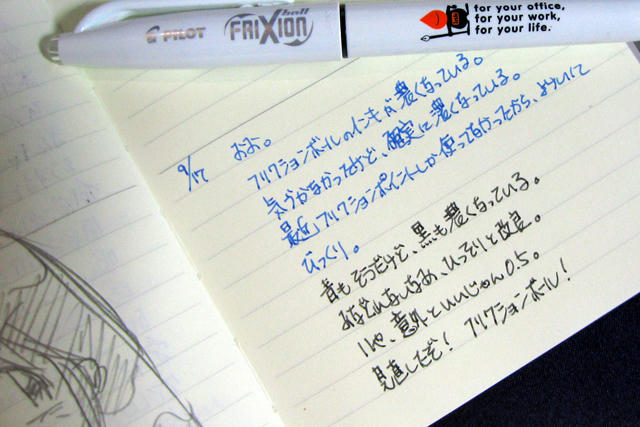 PILOT
FRIXION ball
for your office,
for your work,
for your life.
9/17 おお。
フリクションボールのインキが濃くなっている。
気づかなかったけど、確実に濃くなっている。
最近フリクションポイントしか使ってなかったから、よけいに
びっくり。
青もそうだけど、黒も濃くなっている。
ひっそりと改良。
いや、意外といいじゃん0.5。
見直したぞ！ フリクションボール！